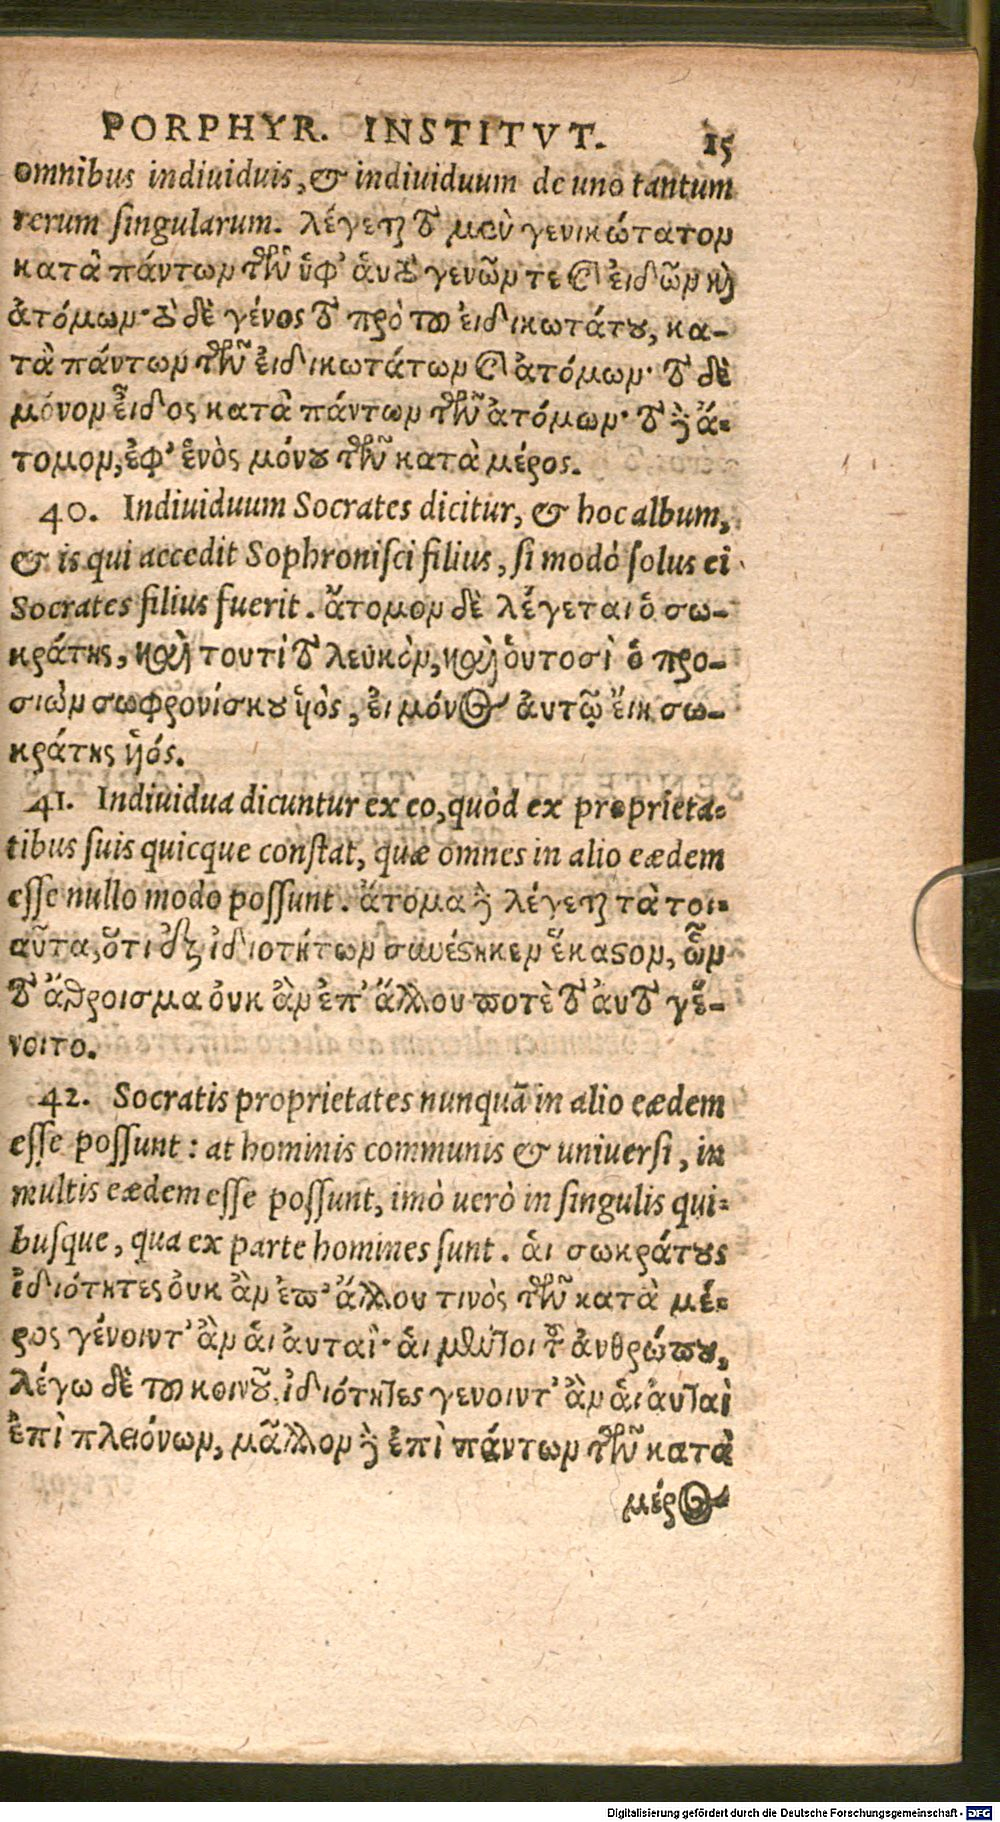 PORPHYR. INSTITVT. 15
omnibus indiuiduis, & indiuiduum de uno tantum
rerum ſingularum. λέγεται τὸ μὲν γενικώτατον
κατὰ πάντων τῶν ὑφ' ἁυτὸ γενῶν τε καὶ ἐιδῶν καὶ
ἀτόμων· τὸ δὲ γένος τὸ πρὸ τοῦ ἐιδικωτάτου, κα-
τὰ πάντων τῶν ἐιδικωτάτων καὶ ἀτόμων· τὸ δὲ
μόνον εἶδος κατὰ πάντων τῶν ἀτόμων· τὸ δὲ ἄ-
τομον, ἐφ' ἑνὸς μόνου τῶν κατὰ μέρος.
40. Indiuiduum Socrates dicitur, & hoc album,
& is qui accedit Sophroniſci filius, ſi modò ſolus ei
Socrates filius fuerit. ἄτομον δὲ λέγεται ὁ σω-
κράτης, καὶ τουτὶ τὸ λευκὸν, καὶ ὁυτοσὶ ὁ προ-
σιὼν σωφρονίσκου ὑιὸς, ἐι μόνος ἀυτῷ ἔιη σω-
κράτης ὑιός.
41. Indiuidua dicuntur ex eo, quòd ex proprieta-
tibus ſuis quicque conſtat, quæ omnes in alio eædem
eſſe nullo modo poſſunt. ἄτομα δὲ λέγεται τὰ τοι-
αῦτα, ὅτι ἐξ ἰδιοτήτων συνέστηκεν ἕκαστον, ὧν
τὸ ἄθροισμα ὀυκ ἂν ἐπ' ἄλλου ποτὲ τὸ ἀυτὸ γέ-
νοιτο.
42. Socratis proprietates nunquã in alio eædem
eſſe poſſunt: at hominis communis & uniuerſi, in
multis eædem eſſe poſſunt, imò uerò in ſingulis qui-
buſque, qua ex parte homines ſunt. ἁι σωκράτους
ἰδιότητες ὀυκ ἂν ἐπ' ἄλλου τινὸς τῶν κατὰ μέ-
ρος γένοιντ' ἂν ἁι ἀυταὶ· ἁι μέντοι τοῦ ἀνθρώπου,
λέγω δὲ τοῦ κοινοῦ, ἰδιότητες γενοιντ' ἂν ἁι ἀυταὶ
ἐπὶ πλειόνων, μᾶλλον δὲ ἐπὶ πάντων τῶν κατὰ
μέρος
Digitalisierung gefördert durch die Deutsche Forschungsgemeinschaft - DFG